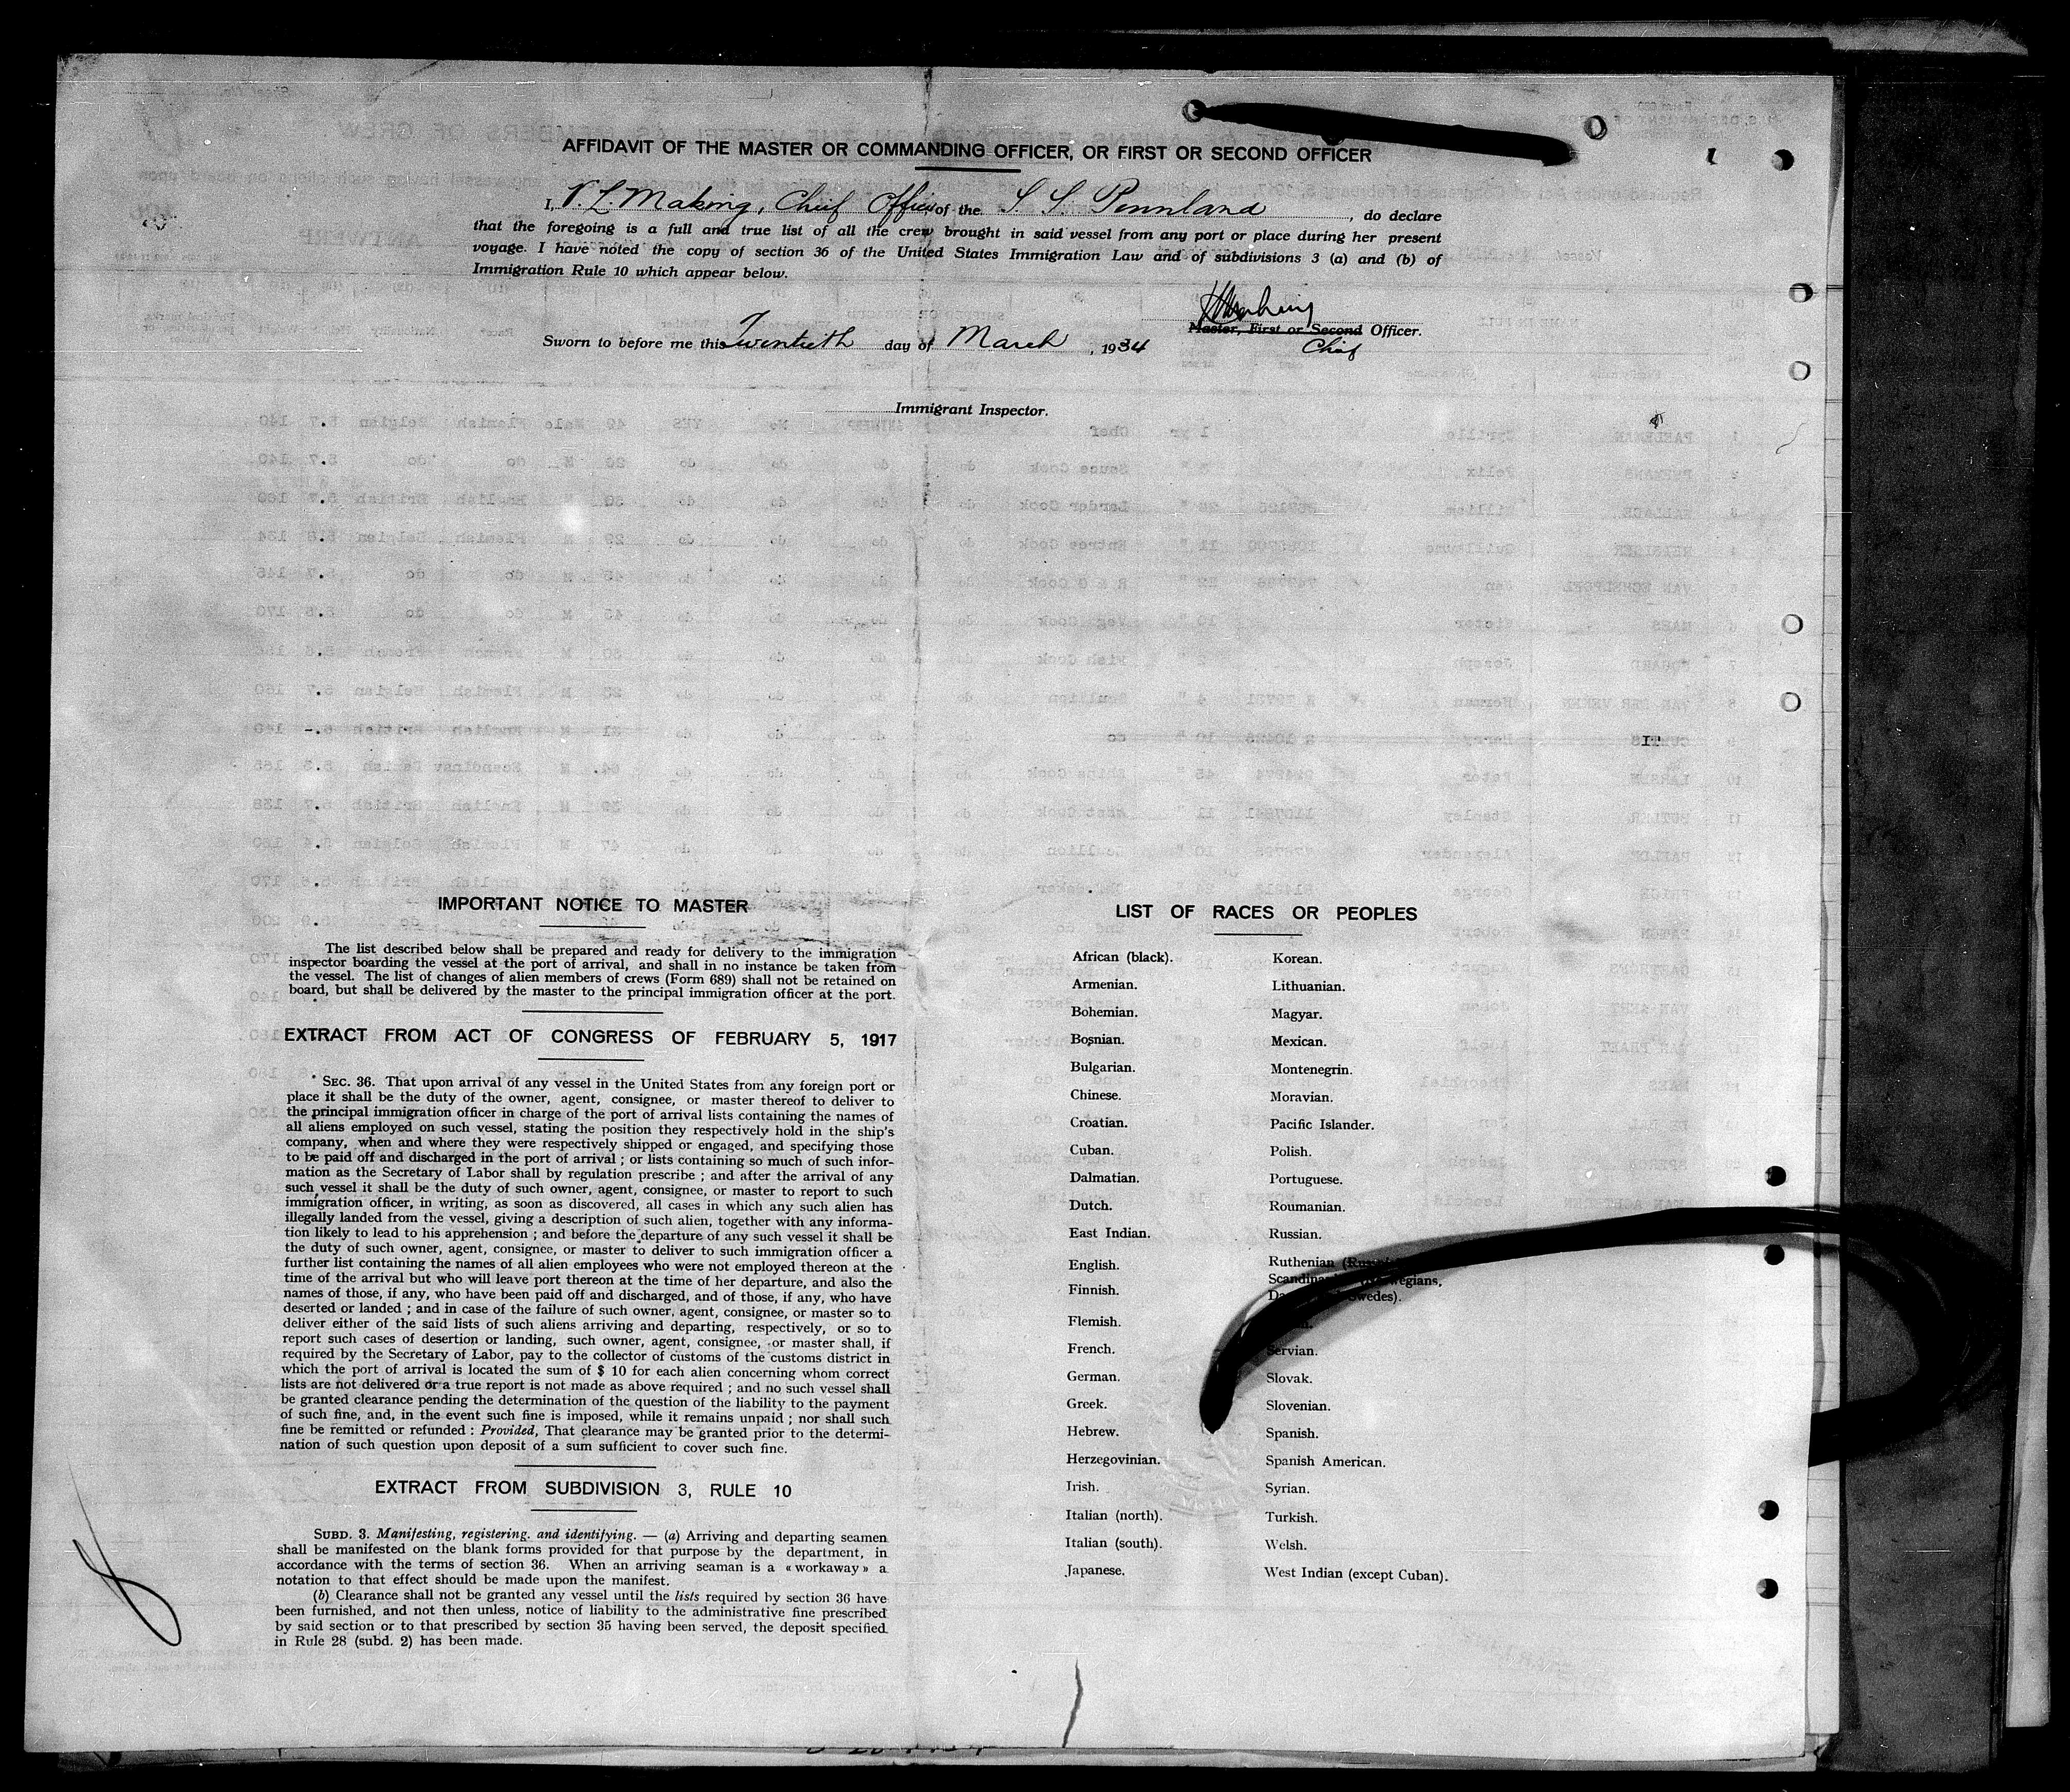 AFFIDAVIT OF THE MASTER OR COMMANDING OFFICER, OR FIRST OR SECOND OFFICER
I, V. L. Making, Chief Officer of the S. S. Pennland, do declare
that the foregoing is a full and true list of all the crew brought in said vessel from any port or place during her present
voyage. I have noted the copy of section 36 of the United States Immigration Law and of subdivisions 3 (a) and (b) of
Immigration Rule 10 which appear below.
Master, First or Second Officer.
Chief
Sworn to before me this Twentieth day of March, 1934
Immigrant Inspector.
IMPORTANT NOTICE TO MASTER
The list described below shall be prepared and ready for delivery to the immigration
inspector boarding the vessel at the port of arrival, and shall in no instance be taken from
the vessel. The list of changes of alien members of crews (Form 689) shall not be retained on
board, but shall be delivered by the master to the principal immigration officer at the port.
EXTRACT FROM ACT OF CONGRESS OF FEBRUARY 5, 1917
SEC. 36. That upon arrival of any vessel in the United States from any foreign port or
place it shall be the duty of the owner, agent, consignee, or master thereof to deliver to
the principal immigration officer in charge of the port of arrival lists containing the names of
all aliens employed on such vessel, stating the position they respectively hold in the ship's
company, when and where they were respectively shipped or engaged, and specifying those
to be paid off and discharged in the port of arrival ; or lists containing so much of such infor-
mation as the Secretary of Labor shall by regulation prescribe ; and after the arrival of any
such vessel it shall be the duty of such owner, agent, consignee, or master to report to such
immigration officer, in writing, as soon as discovered, all cases in which any such alien has
illegally landed from the vessel, giving a description of such alien, together with any informa-
tion likely to lead to his apprehension ; and before the departure of any such vessel it shall be
the duty of such owner, agent, consignee, or master to deliver to such immigration officer a
further list containing the names of all alien employees who were not employed thereon at the
time of the arrival but who will leave port thereon at the time of her departure, and also the
names of those, if any, who have been paid off and discharged, and of those, if any, who have
deserted or landed ; and in case of the failure of such owner, agent, consignee, or master so to
deliver either of the said lists of such aliens arriving and departing, respectively, or so to
report such cases of desertion or landing, such owner, agent, consignee, or master shall, if
required by the Secretary of Labor, pay to the collector of customs of the customs district in
which the port of arrival is located the sum of $ 10 for each alien concerning whom correct
lists are not delivered or a true report is not made as above required ; and no such vessel shall
be granted clearance pending the determination of the question of the liability to the payment
of such fine, and, in the event such fine is imposed, while it remains unpaid ; nor shall such
fine be remitted or refunded : Provided, That clearance may be granted prior to the determi-
nation of such question upon deposit of a sum sufficient to cover such fine.
EXTRACT FROM SUBDIVISION 3, RULE 10
SUBD. 3. Manifesting, registering. and identifying. — (a) Arriving and departing seamen
shall be manifested on the blank forms provided for that purpose by the department, in
accordance with the terms of section 36. When an arriving seaman is a « workaway » a
notation to that effect should be made upon the manifest.
(b) Clearance shall not be granted any vessel until the lists required by section 36 have
been furnished, and not then unless, notice of liability to the administrative fine prescribed
by said section or to that prescribed by section 35 having been served, the deposit specified
in Rule 28 (subd. 2) has been made.
LIST OF RACES OR PEOPLES
African (black).
Armenian.
Bohemian.
Bosnian.
Bulgarian.
Chinese.
Croatian.
Cuban.
Dalmatian.
Dutch.
East Indian.
English.
Finnish.
Flemish.
French.
German.
Greek.
Hebrew.
Herzegovinian.
Irish.
Italian (north).
Italian (south).
Japanese.
Korean.
Lithuanian.
Magyar.
Mexican.
Montenegrin.
Moravian.
Pacific Islander.
Polish.
Portuguese.
Roumanian.
Russian.
Ruthenian
Servian.
Slovak.
Slovenian.
Spanish.
Spanish American.
Syrian.
Turkish.
Welsh.
West Indian (except Cuban).